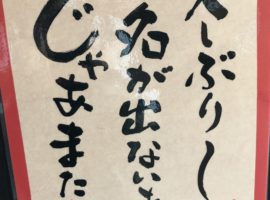 久しぶりし
名が出ないま
じゃあまた